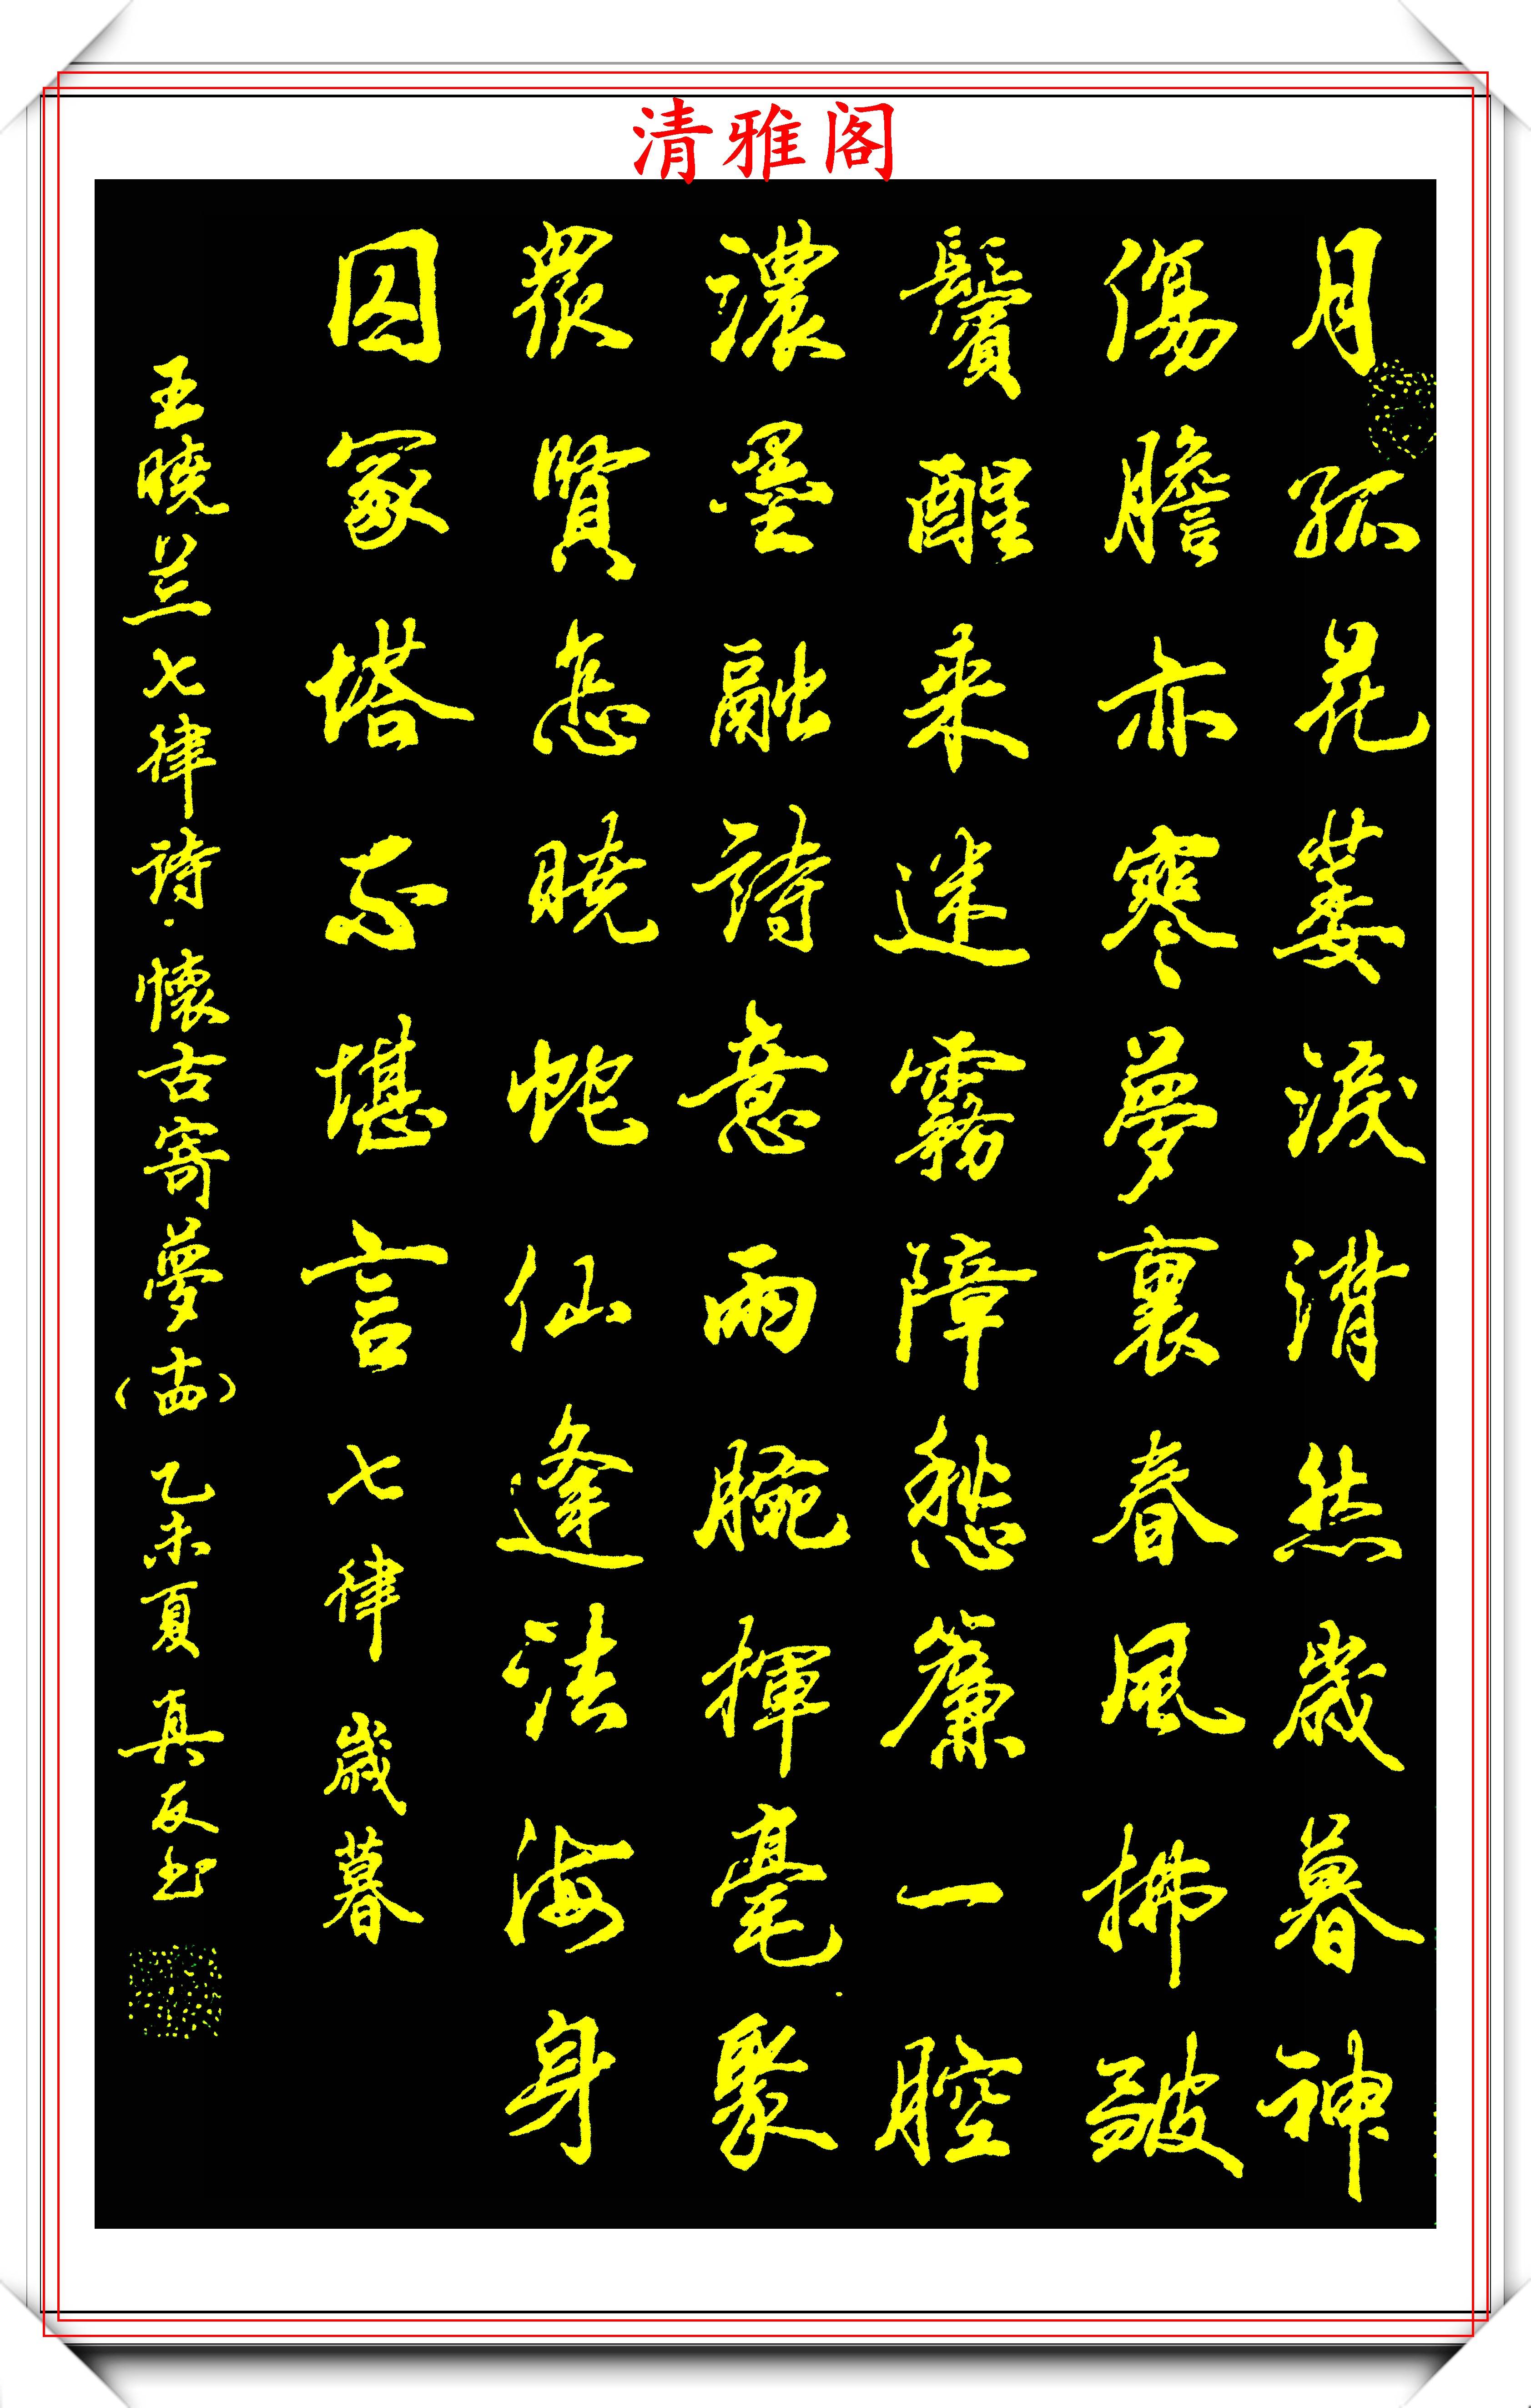 清雅阁
月孤花萎淚潸然歲暮神
傷膽亦寒夢裏春風拂皺
鬢醒来迷霧障愁簾一腔
濃墨融詩意兩腕揮毫聚
眾賢怎曉蛇仙逢法海身
囚冢塔不堪言七律歲暮
王曉兰七律詩·懷古寄夢(十四)乙未夏真友书